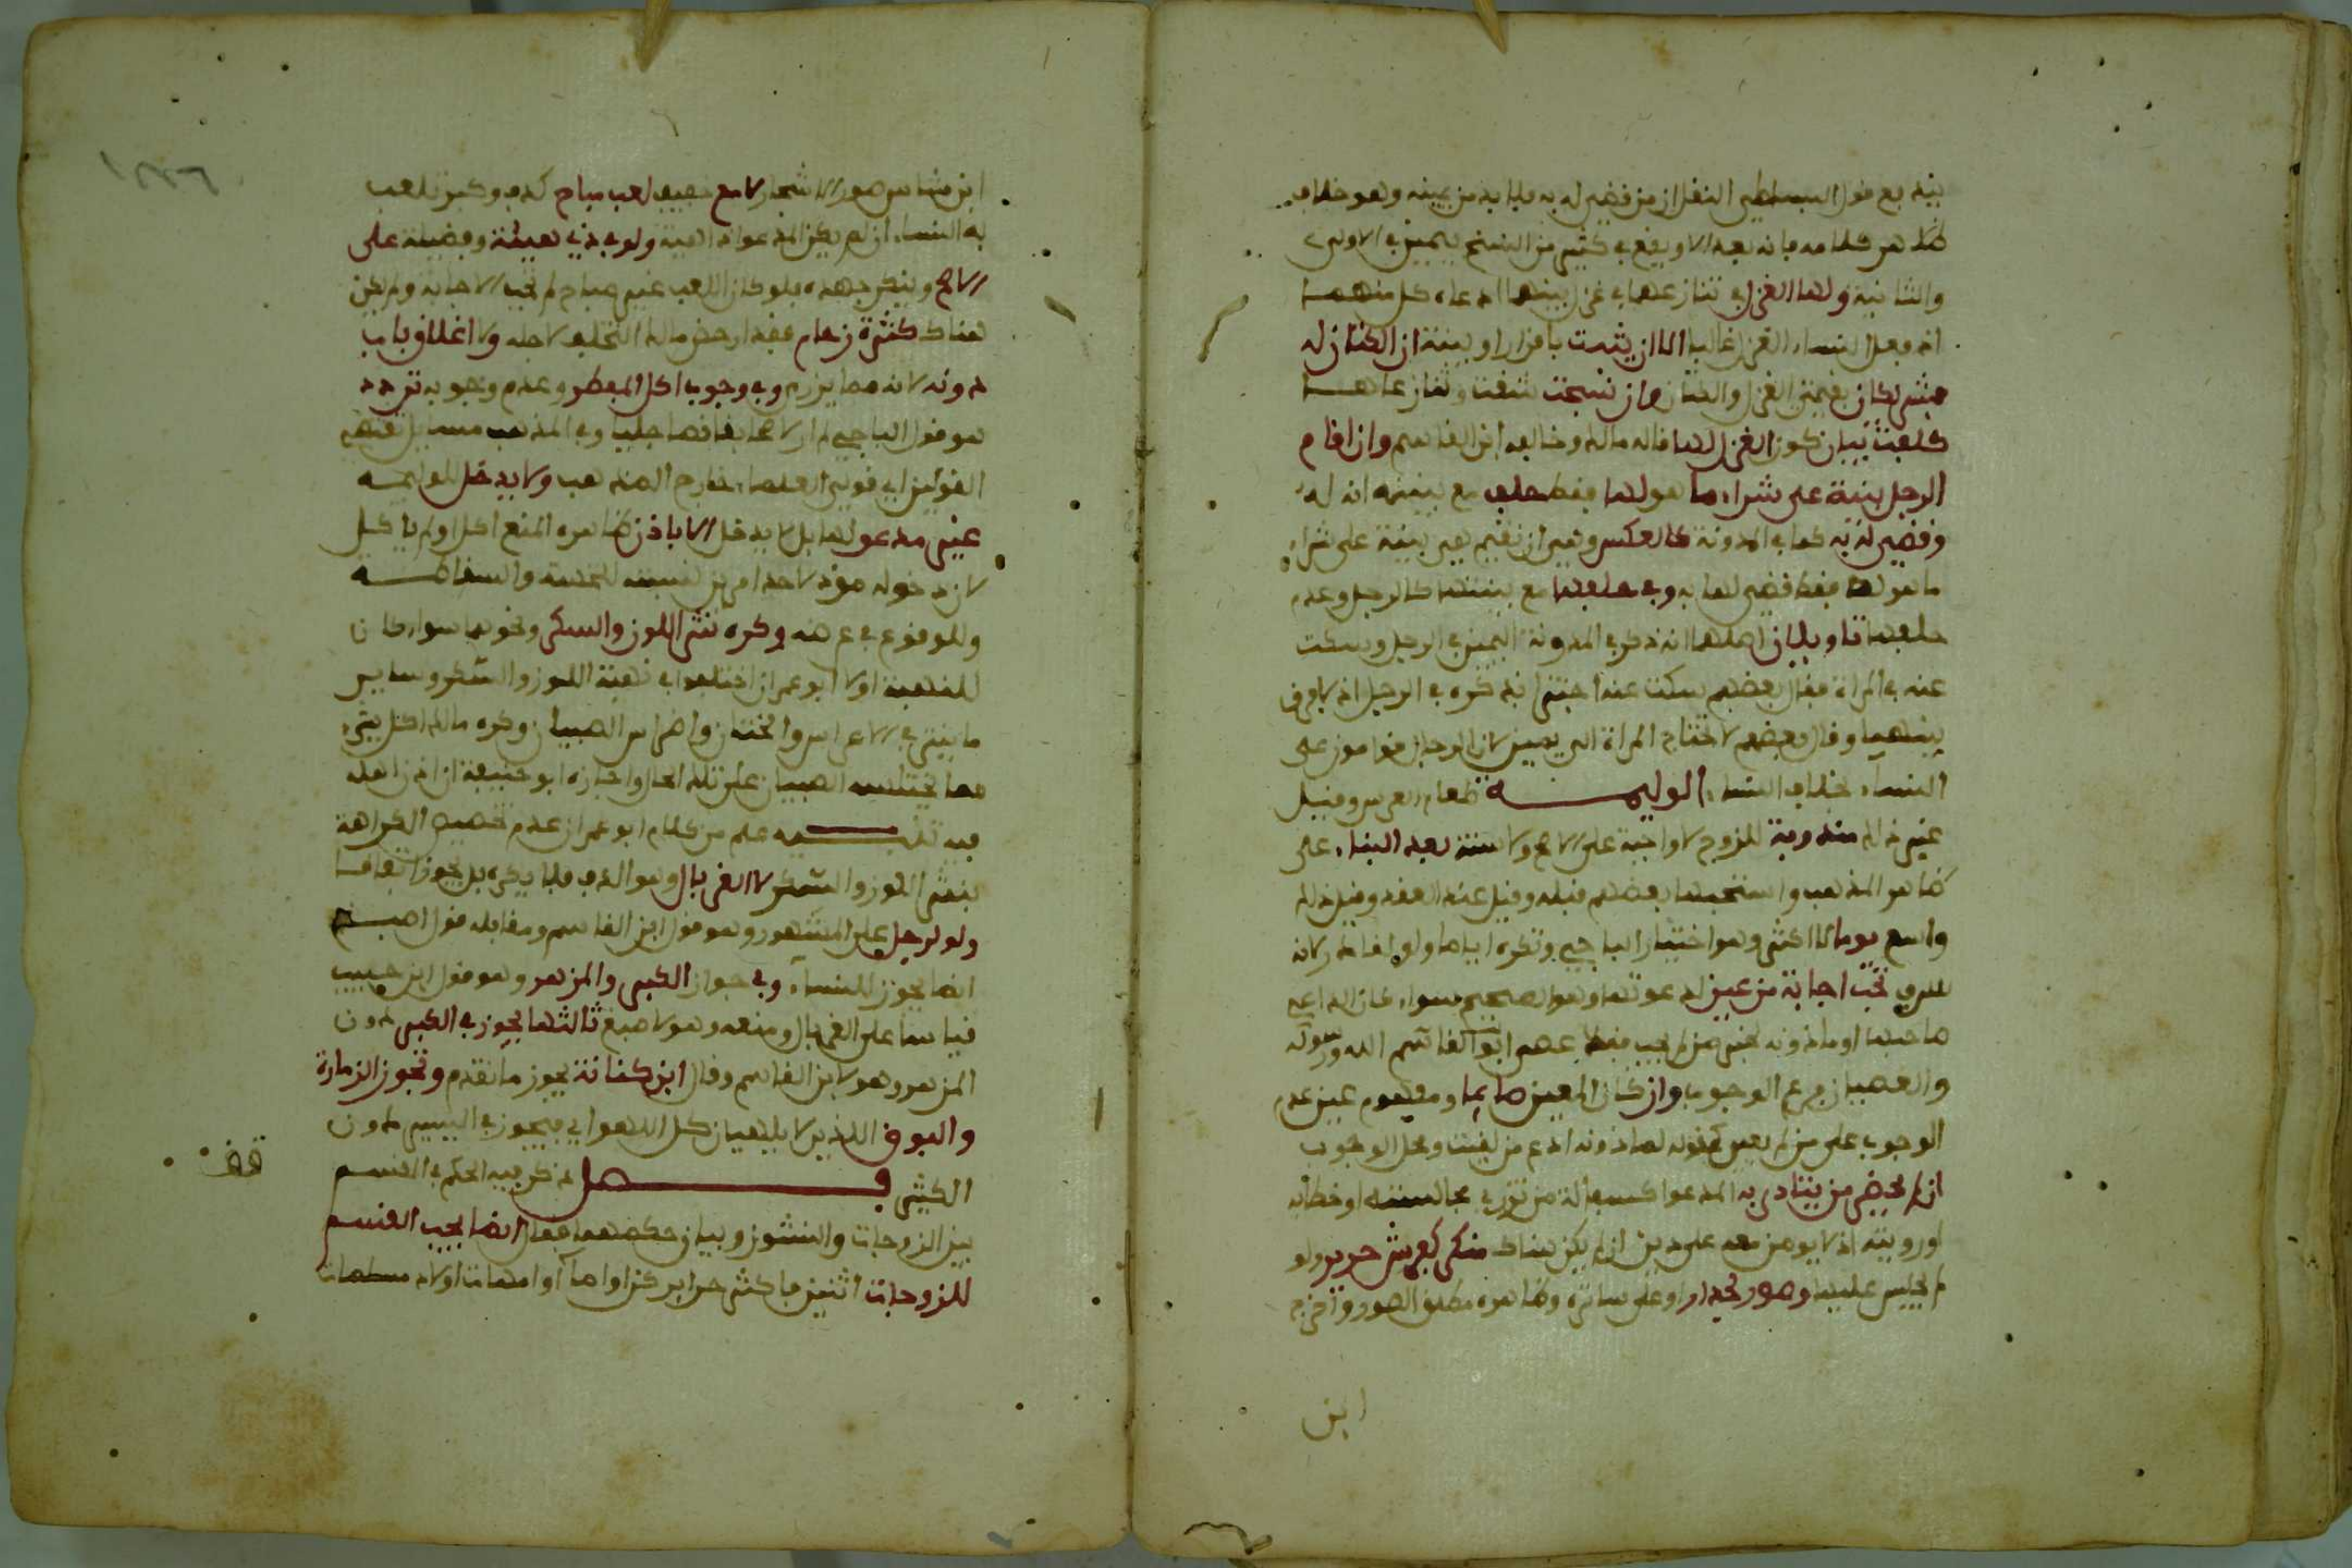 بينة مع قول البساطي النقل ان من قضي له به فلا بد من يمينه وهو خلاف
ظاهر كلامه فانه بعد الا ويقع في كثير من النسخ بيمين في الاولى
والثانية ولها الغزل اي تنازعهما في غزل بينهما ادعاه كل منهما
اذ فعل النساء الغزل غالبا الا ان يثبت باقرار او بينة ان الكتان له
فشريكان بقيمتي الغزل والكتان وان نسجت شقة وتنازعاها
كلفت ببيان كون الغزل لها قاله مالك وخالفه ابن القاسم وان اقام
الرجل بينة على شراء ما هو لها فقط حلف مع بينته انه له
وقضي له به كما في المدونة كالعكس وهي ان تقيم هي بينة على شراء
ما هو له فقط قضي لها به وفي حلفها مع بينتها كالرجل وعدم
حلفها تاويلان اصلهما انه ذكر في المدونة اليمين في الرجل وسكت
عنه في المراة فقال بعضهم سكت عنه اجتزا بذكره في الرجل اذ لا فرق
بينهما وقال بعضهم لا تحتاج المراة الى يمين لان الرجال قوامون على
النساء بخلاف النساء الوليمة طعام العرس وقيل
غير ذلك مندوبة للزوج لا واجبة على الاصح ولا سنة بعد البناء على
ظاهر المذهب واستحبها بعضهم قبله وقيل عند العقد وقيل ذلك
واسع يوما لا اكثر وهو اختيار الباجي وتكره اياما ولو اقامه لانه
سرف تجب اجابة من عين لدعوتها وهو الصحيح سواء كان الداعي
صاحبها او ماذونه لخبر من لم يجب فقد عصى ابا القاسم الله ورسوله
والعصيان فرع الوجوب وان كان المعين صايما ومفهوم عين عدم
الوجوب على من لم يعين كقوله لماذونه ادع من لقيت ومحل الوجوب
ان لم يحضر من يتاذى به المدعو كسفلة من تزري مجالسته او خطابه
او رويته اذ لا يومن معه على دين ان لم يكن هناك منكر كفرش حرير ولو
لم يجلس عليها وصور بجدار او على ساتر وظاهره مطلق الصور واخرج
ابن
ابن شاس صور الاشجار لا مع خفيف لعب مباح كدف وكبر يلعب
به النساء ان لم يكن المدعو ذا هيئة ولو في ذي هيئة وفضيلة على
الاصح وينكر جهده فلو كان اللعب غير مباح لم تجب الاجابة ولم يكن
هناك كثرة زحام فقد ارخص مالك التخلف لاجله ولا اغلاق باب
دونه لانه مما يزري وفي وجوب اكل المفطر وعدم وجوبه تردد
هو قول الباجي لم ار لاصحابنا نصا جليا وفي المذهب مسايل تقتضي
القولين اي قولي العلماء خارج المذهب ولا يدخل الوليمة
غير مدعو لها بل لا يدخل الا باذن ظاهره المنع اكل او لم ياكل
لان دخوله مود لاحد امرين لنسبته للخسة والسفاطة
وللوقوع في عرضه وكره نثر اللوز والسكر ونحوهما سواء كان
للنهبة او لا ابو عمران اختلف في نهبة اللوز والسكر وساير
ما ينثر في الاعراس والختان واضراس الصبيان وكره مالك اكل شيء
مما يختلسه الصبيان على تلك الحال واجازه ابو حنيفة ان اذن اهله
فيه تنبيه علم من كلام ابو عمران عدم تخصيص الكراهة
بنثر اللوز والسكر لا الغربال وهو الدف فلا يكره بل يجوز اتفاقا
ولو لرجل على المشهور وهو قول ابن القاسم ومقابله قول اصبغ
انما يجوز للنساء وفي جواز الكبر والمزهر وهو قول ابن حبيب
قياسا على الغربال ومنعه وهو لاصبغ ثالثها يجوز في الكبر دون
المزهر وهو لابن القاسم وقال ابن كنانة يجوز ما تقدم وتجوز الزمارة
والبوق اللذين لا يلهيان كل اللهو اي فيجوز في اليسير دون
الكثير فصل ذكر فيه الحكم في القسم
بين الزوجات والنشوز وبيان حكمهما فقال انما يجب القسم
للزوجات اثنتين فاكثر حراير كن او اماء او امهات اولاد مسلمات
قف